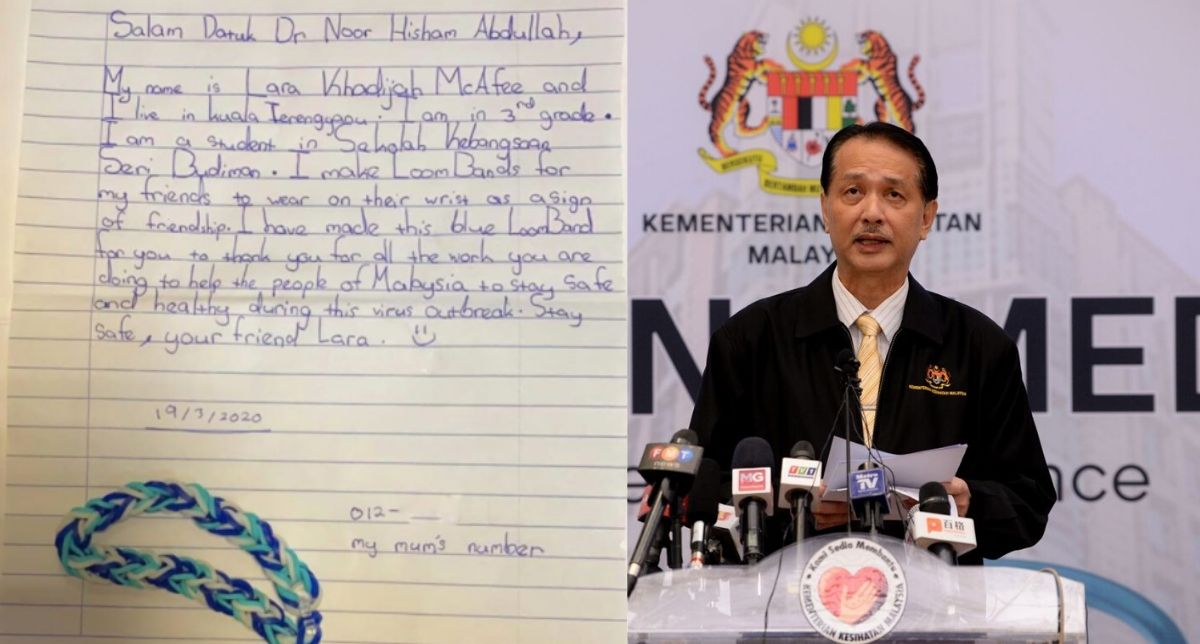 Salam Datuk Dr Noor Hisham Abdullah,
My name is Lara Khadijah McAfee and
I live in Kuala Terengganu. I am in 3rd grade.
I am a student in Sekolah Kebangsaan
Seri Budiman. I make LoomBands for
my friends to wear on their wrist as a sign
of friendship. I have made this blue LoomBand
for you to thank you for all the work you are
doing to help the people of Malaysia to stay safe
and healthy during this virus outbreak. Stay
safe, your friend Lara.
19/3/2020
012-
my mum's number
KEMENTERIAN
ATAN
MALAY
MED
nce
KEMENTERIAN KESIHATAN MALAYSIA
news
MG
Metro
TV
百格
Kami Sedia Membantu
KEMENTERIAN KESIHATAN MALAYSIA